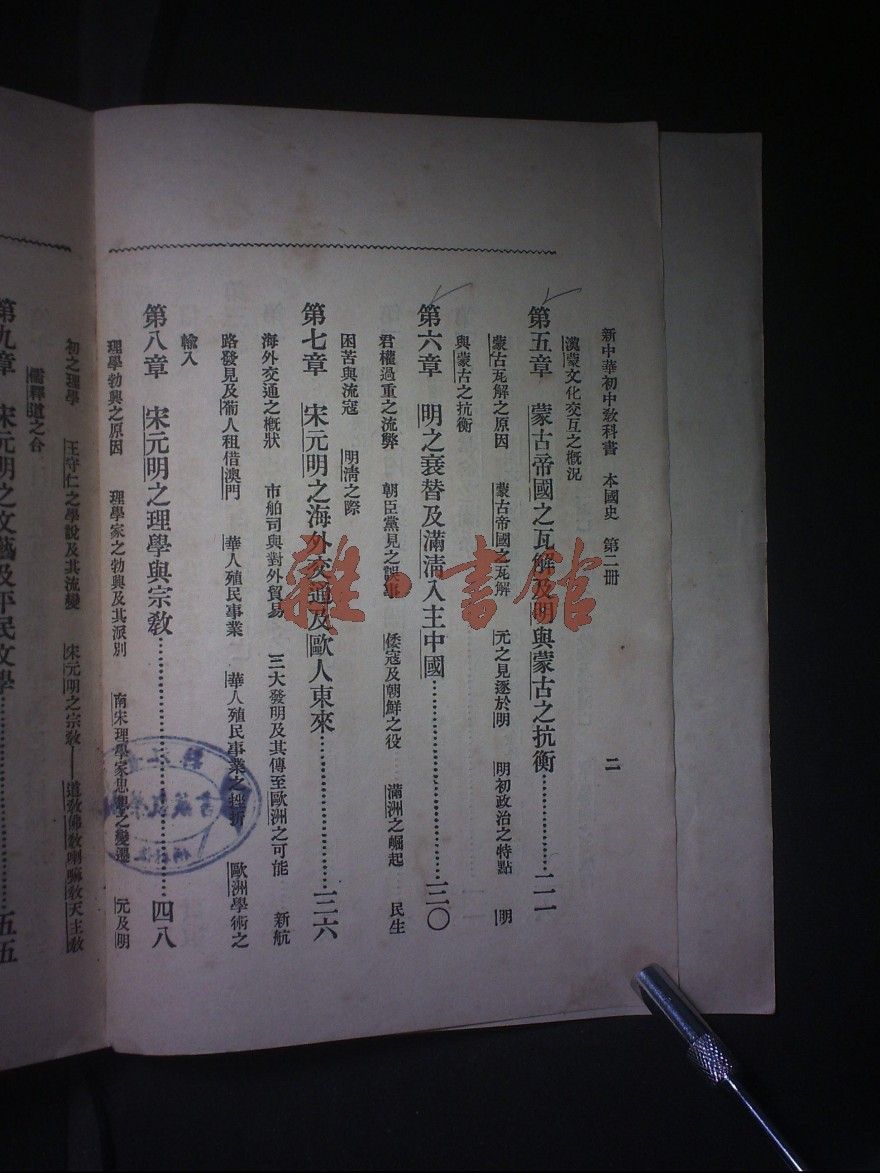 新中華初中敎科書　本國史　第二册
二
漢蒙文化交互之槪況
第五章　蒙古帝國之瓦解及明與蒙古之抗衡…………二一
蒙古瓦解之原因　蒙古帝國之瓦解　元之見逐於明　明初政治之特點　明
與蒙古之抗衡
第六章　明之衰替及滿淸入主中國…………三〇
君權過重之流弊　朝臣黨見之誤事　倭寇及朝鮮之役　滿洲之崛起　民生
困苦與流寇　明淸之際
第七章　宋元明之海外交通及歐人東來…………三六
海外交通之槪狀　市舶司與對外貿易　三大發明及其傳至歐洲之可能　新航
路發見及葡人租借澳門　華人殖民事業　華人殖民事業之挫折　歐洲學術之
輸入
第八章　宋元明之理學與宗敎…………四八
理學勃興之原因　理學家之勃興及其派別　南宋理學家思想之變遷　元及明
初之理學　王守仁之學說及其流變　宋元明之宗敎——道敎佛敎喇嘛敎天主敎
儒釋道之合
第九章　宋元明之文藝及平民文學…………五五
雜·書館